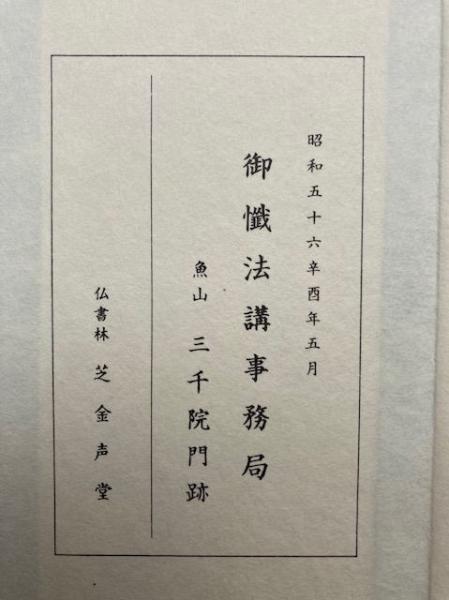 昭和五十六辛酉年五月
御懺法講事務局
魚山 三千院門跡
仏書林 芝金声堂